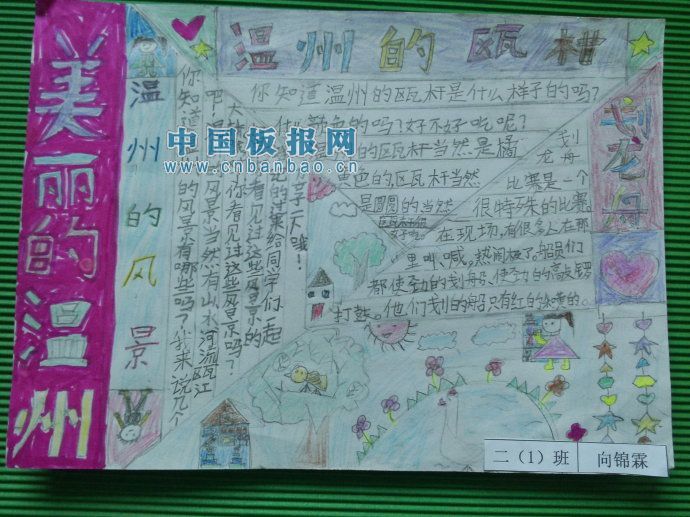 美丽的温州
温州的风景
温州的瓯柑
划龙舟
你知道温州的瓯柑是什么样子的吗？
什么颜色的吗？好不好吃呢？
的瓯杆当然是橘
色的，瓯杆当然
是圆圆的当然
划龙舟
比赛是一个
很特殊的比赛。
在现场，有很多人在那
里叫喊，热闹极了，船员们
都使劲的划船、使劲的敲锣
打鼓。他们划的船只有红的
你知道
的风景有哪些吗？我来说几个
吧
风景当然有山水河流瓯江
你看见过这些风景吗？
看见过这些风景的
的苹果给同学们一起
享一天哦！
中国板报网
www.cnbanbao.cn
二（1）班
向锦霖